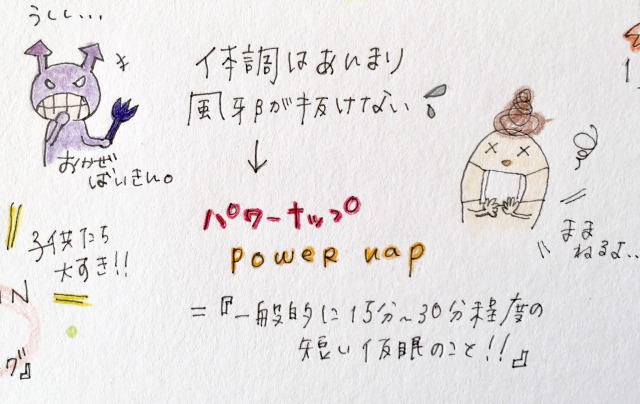 うしし...
体調はあんまり
風邪が抜けない
おかぜ
ばいきん。
パワーナップ
power nap
まま
ねるよ..
子供たち
大すき!!
IN
グ』
=『一般的に15分~30分程度の
短い仮眠のこと!!』